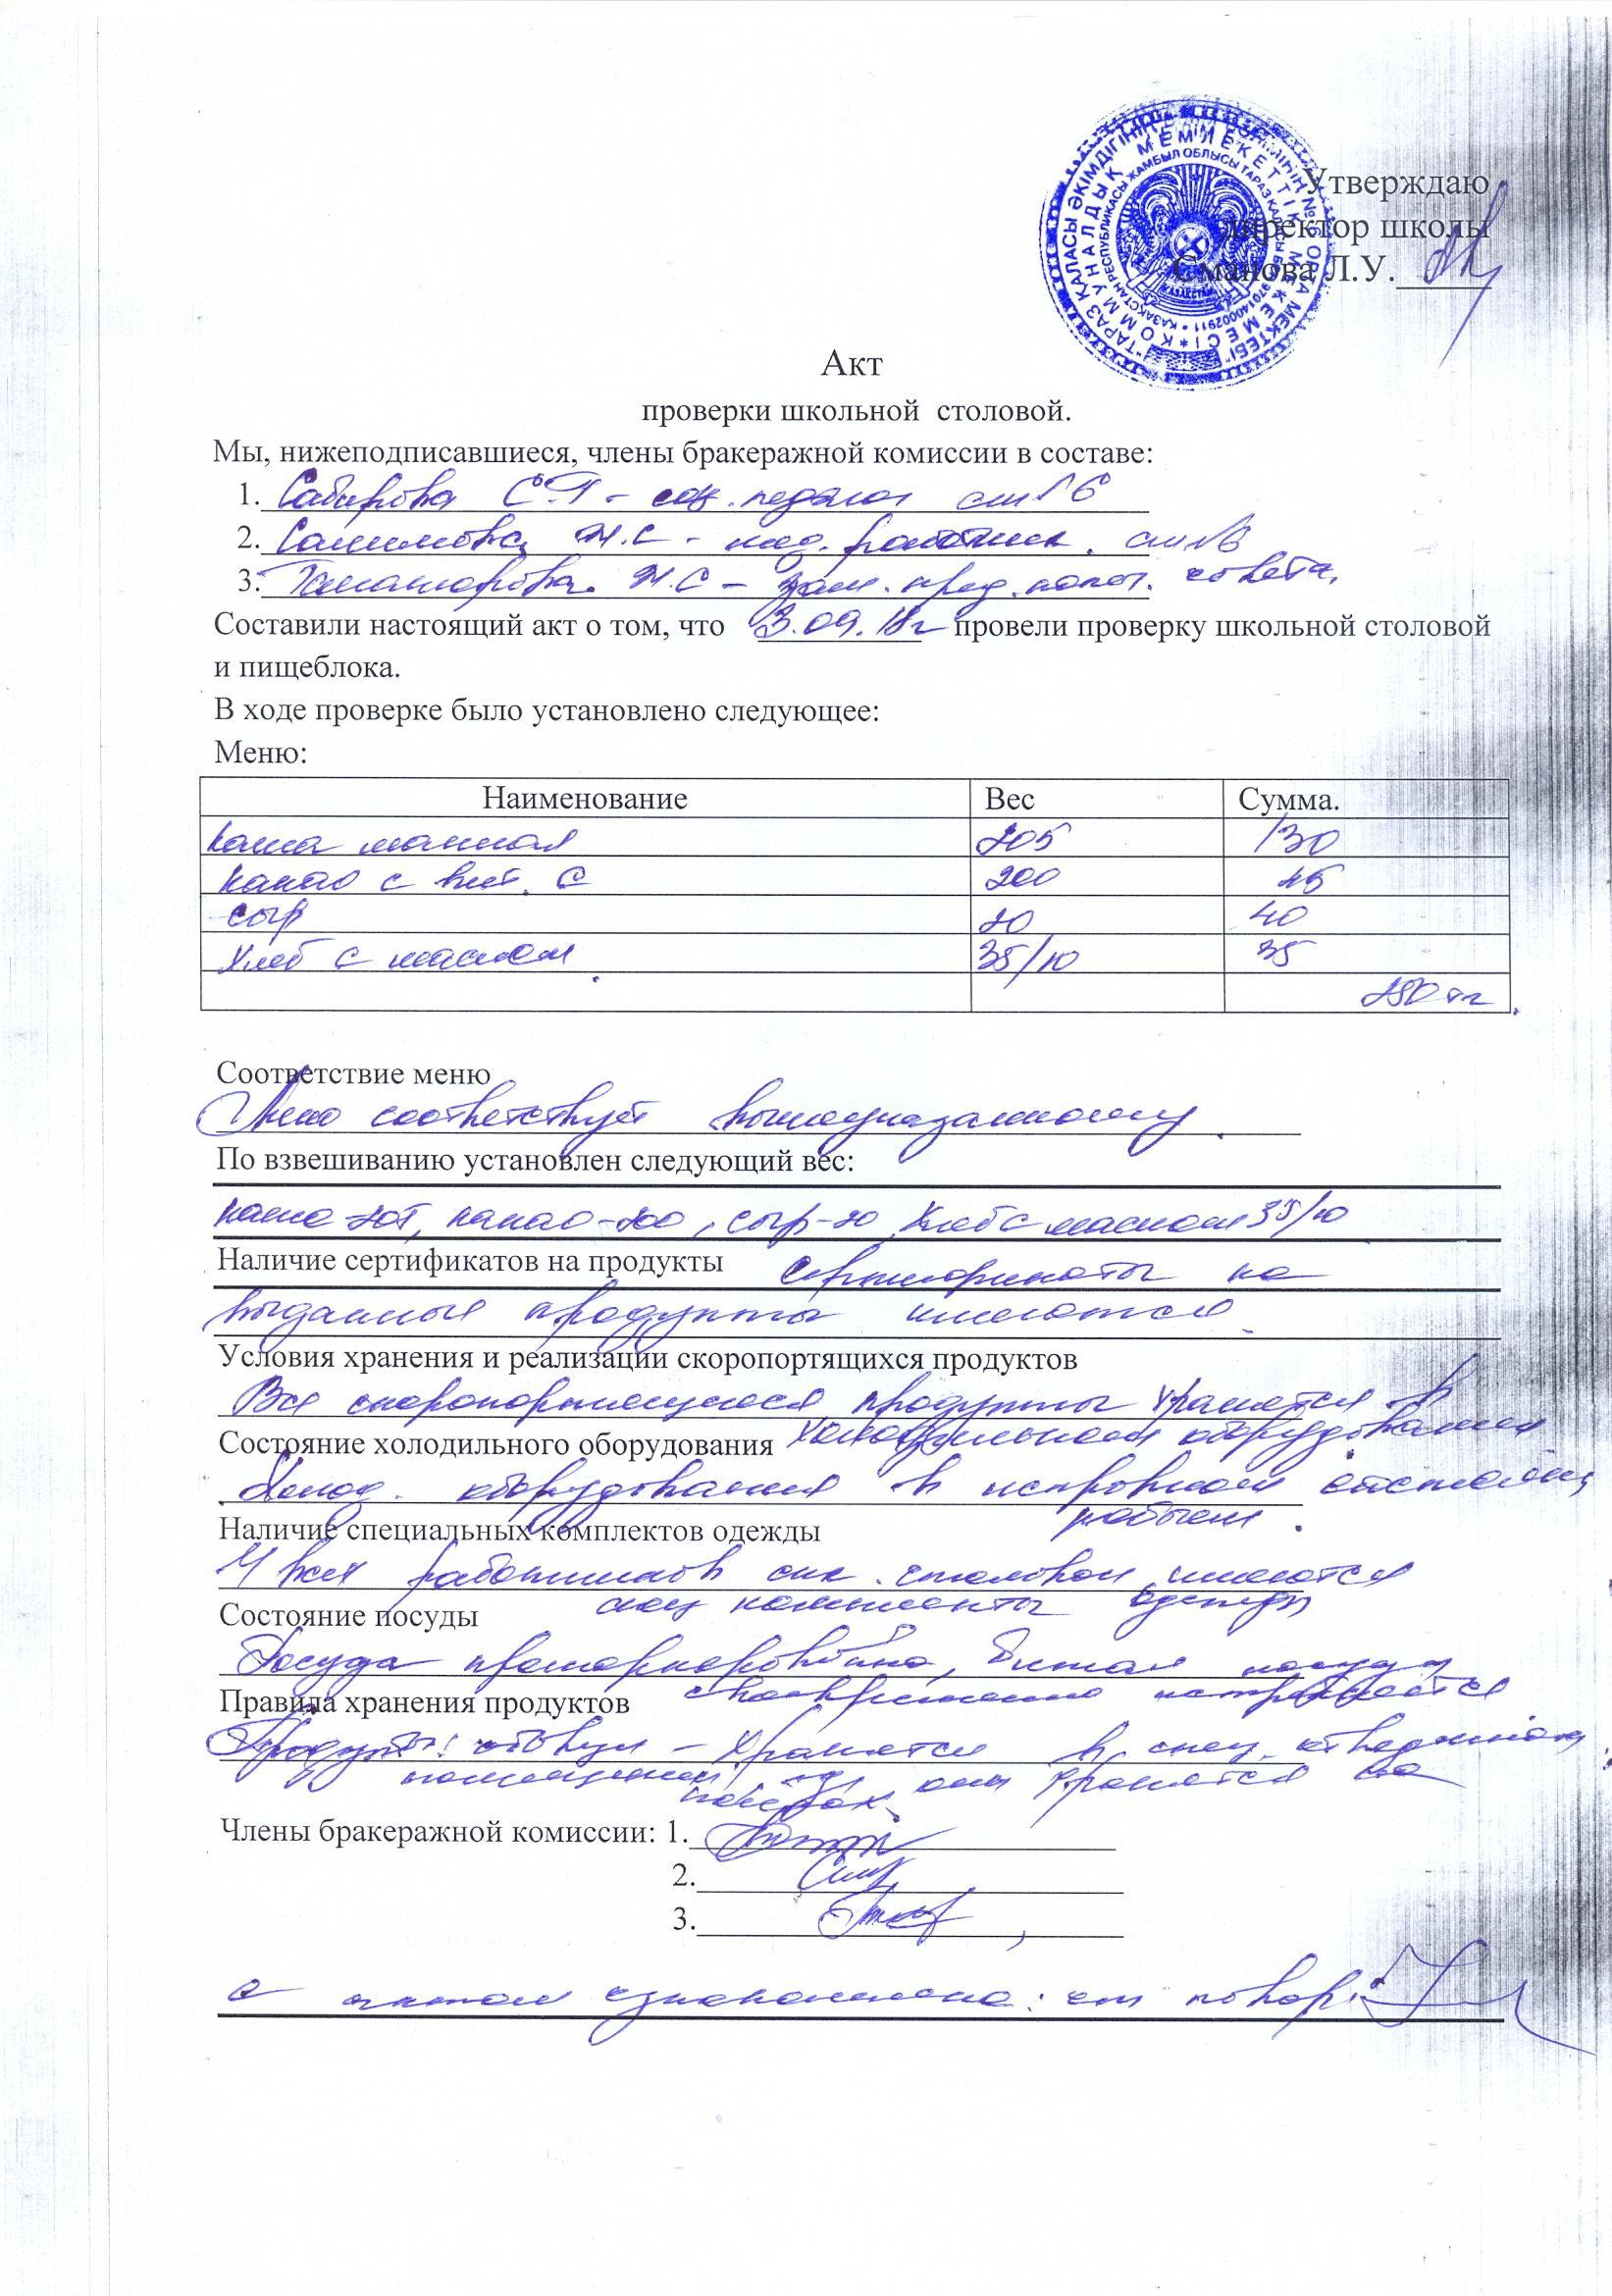 Утверждаю
директор школы
Сманова Л.У.
Акт
проверки школьной столовой.
Мы, нижеподписавшиеся, члены бракеражной комиссии в составе:
1. Сабирова С.Т - соц. педагог сш №6
2. Салимова Ж.С - мед. работник. сш №6
3. - зам. пред. попеч. совета.
Составили настоящий акт о том, что 3.09.18г провели проверку школьной столовой
и пищеблока.
В ходе проверке было установлено следующее:
Меню:
Наименование Вес Сумма.
Каша манная 205 130
Какао с вит. С 200 45
сыр 20 40
Хлеб с маслом. 35/10 35
250 тг.
Соответствие меню
Меню соответствует вышеуказанному.
По взвешиванию установлен следующий вес:
каша 205, какао-200, сыр-20 Хлеб с маслом 35/10
Наличие сертификатов на продукты Сертификаты на
выданные продукты имеются.
Условия хранения и реализации скоропортящихся продуктов
Все скоропортящиеся продукты хранятся в
Состояние холодильного оборудования холодильном оборудовании
Холод. оборудования в исправном состоянии,
Наличие специальных комплектов одежды рабочем.
У всех работников шк. столовой имеются
Состояние посуды спец комплекты одежды
Посуда промаркирована, битая посуда
Правила хранения продуктов своевременно
Продукты: - хранятся в спец. отведенном
помещении, они хранятся на
Члены бракеражной комиссии: 1.
2.
3.
С актом ознакомлена: повар: